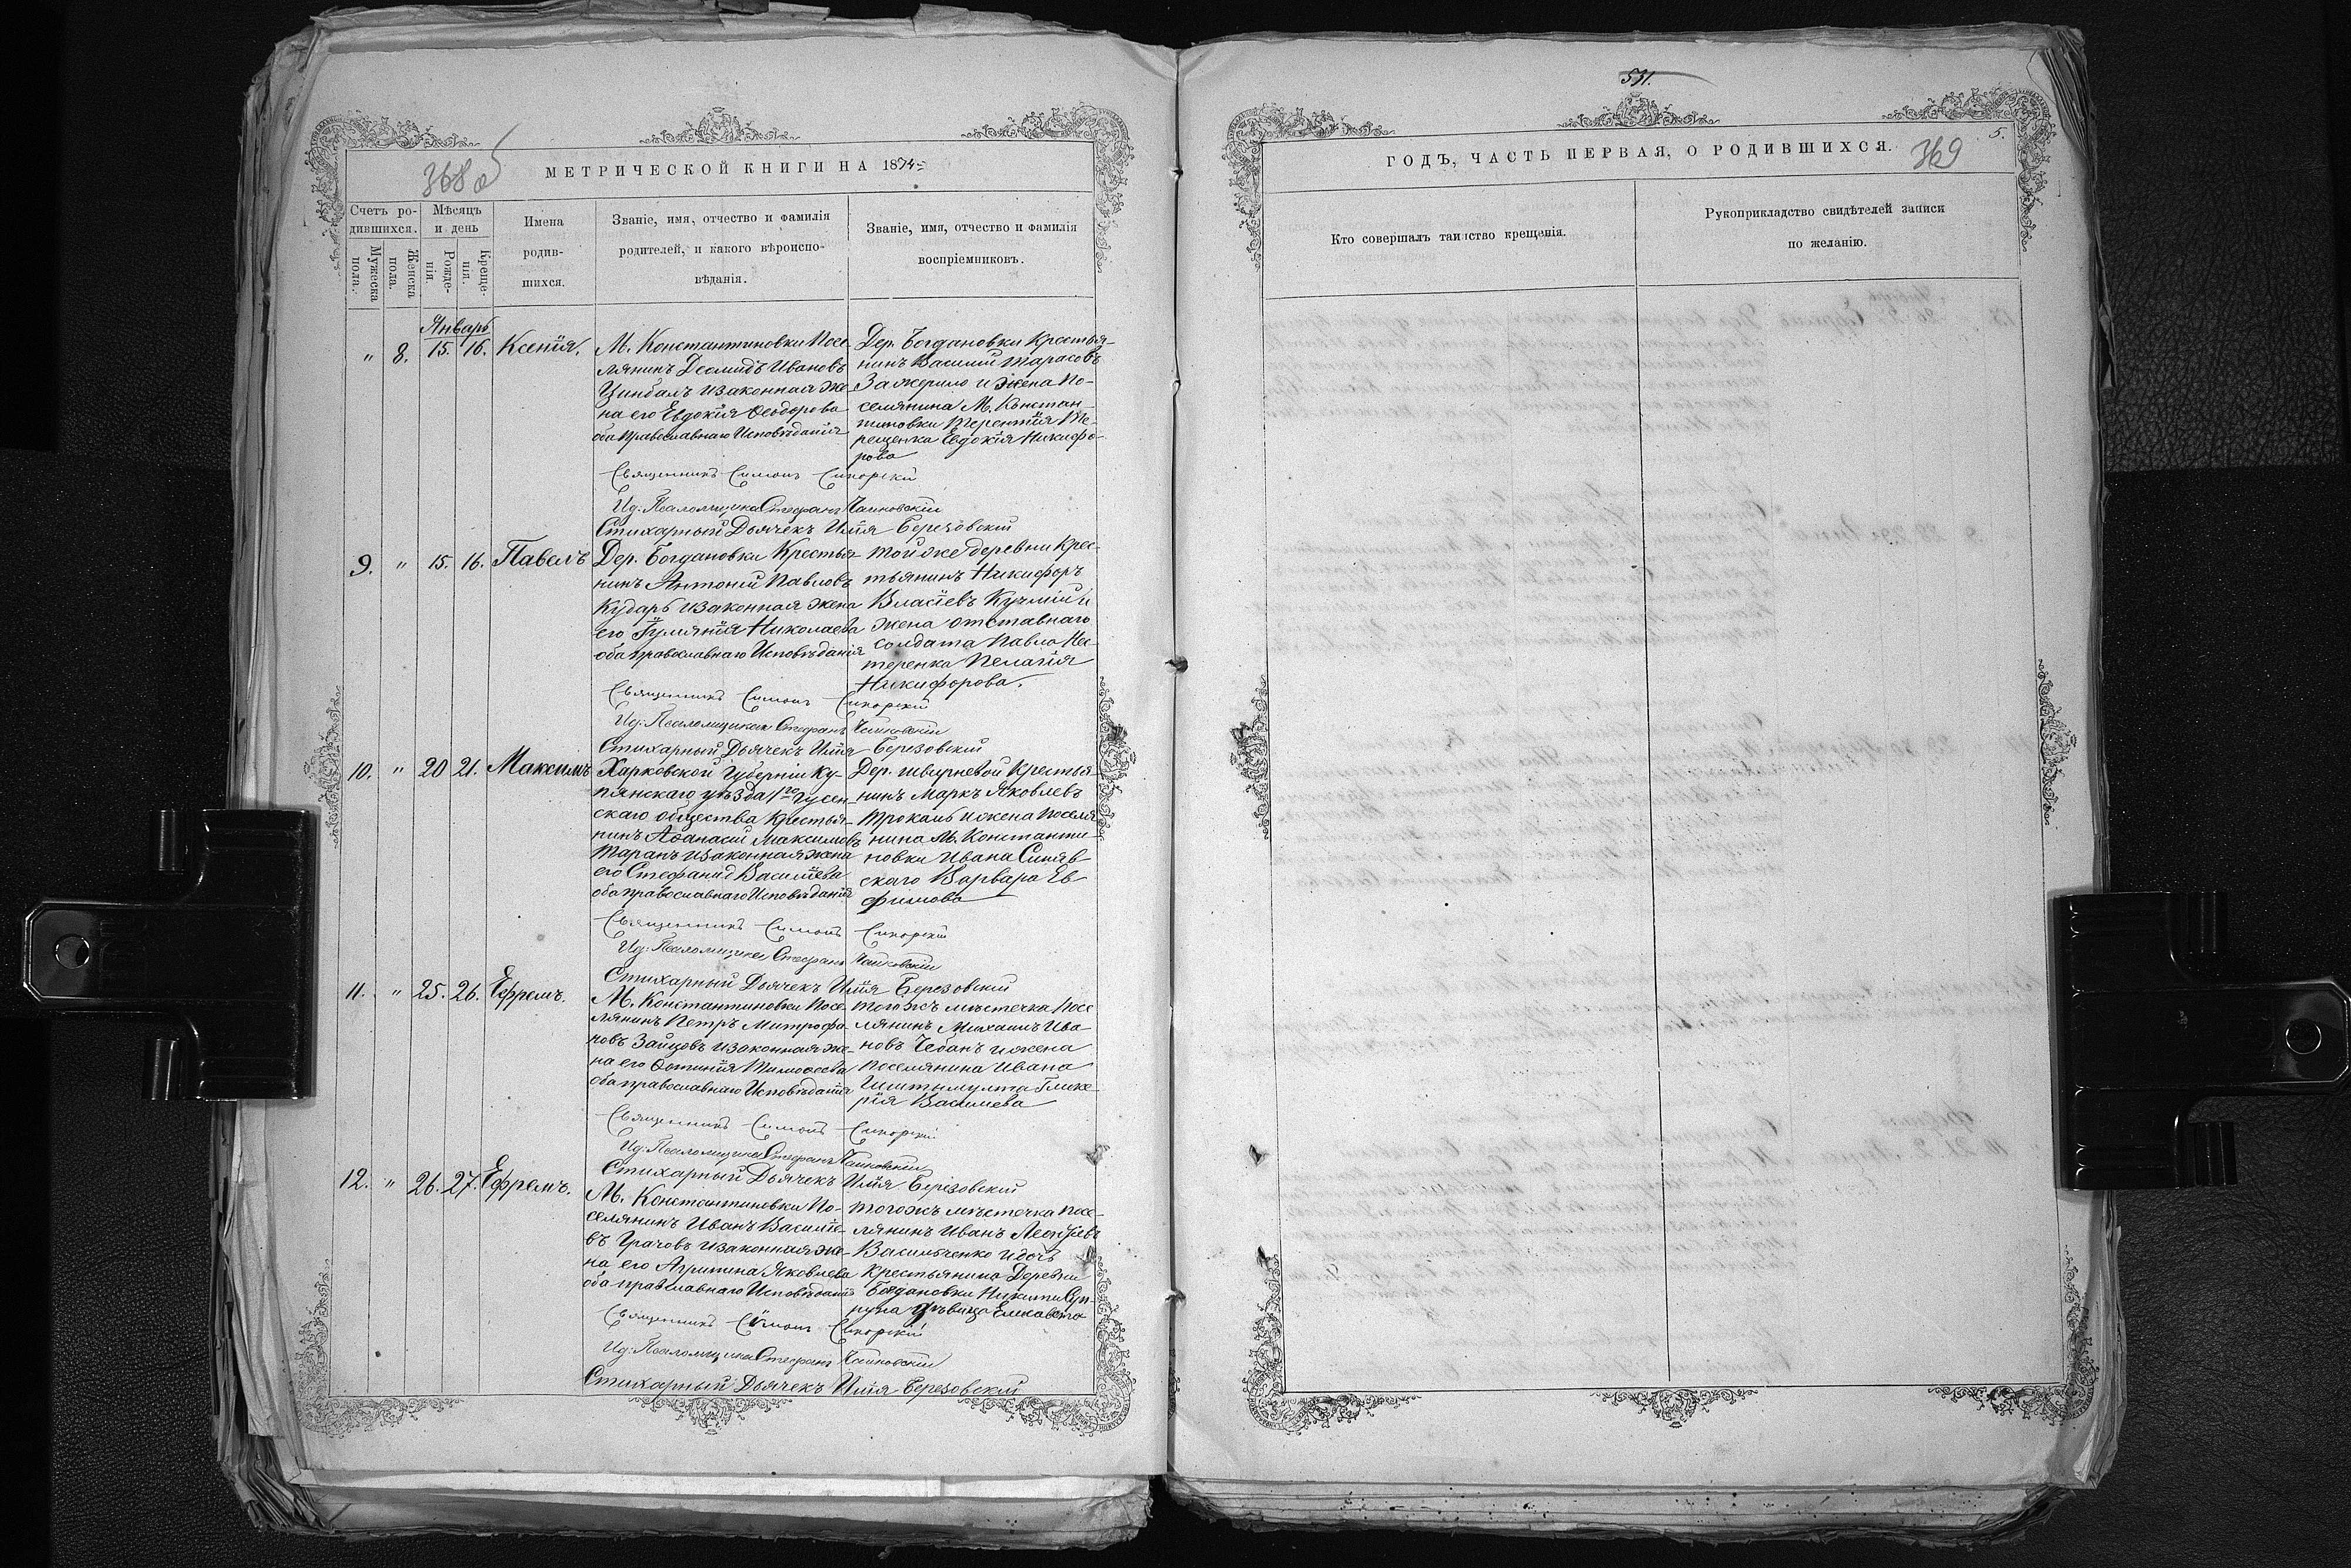 368 об
МЕТРИЧЕСКОЙ КНИГИ НА 1874
Счетъ ро-
дившихся.
Мужеска
пола.
Женска
пола.
Мѣсяцъ
и день
Рожде-
нія.
Креще-
нія.
Имена
родив-
шихся.
Званіе, имя, отчество и фамилія
родителей, и какого вѣроиспо-
вѣданія.
Званіе, имя, отчество и фамилія
воспріемниковъ.
Январь
" 8. 15. 16. Ксенія.
М. Константиновки Посе-
лянинъ Деомидъ Ивановъ
Цинбалъ и законная же-
на его Евдокія Ѳеодорова
оба православнаго Исповѣданія
Дер. Богдановки Крестья-
нинъ Василий Тарасовъ
Зажерило и жена По-
селянина М. Констан-
тиновки Терентія Те-
рещенка Евдокія Никифо-
рова
Священникъ Симонъ Сикорскій
Ид: Псаломщика Стефанъ Чайковскій
Стихарный Дьячекъ Илія Березовский
9. " 15. 16. Павелъ
Дер. Богдановки Крестья-
нинъ Антоний Павловъ
Кударь и законная жена
его Іуліянія Николаева
оба православнаго Исповѣданія
Той же деревни Крес-
тьянинъ Никифоръ
Власіевъ Кучмій и
жена отставнаго
солдата Павла Нес-
теренка Пелагія
Никифорова.
Священникъ Симонъ Сикорскій
Ид: Псаломщика Стефанъ Чайковскій
Стихарный Дьячекъ Илія Березовский
10. " 20 21. Максимъ
Харковской Губерніи Ку-
пянскаго уѣзда 1го Гусен-
скаго общества Крестья-
нинъ Аѳанасій Максимовъ
Таранъ и законная жена
его Стефанид Василіева
оба православнаго Исповѣданія
Дер. Крестья-
нинъ Маркъ Яковлевъ
и жена Поселя
нина М. Константи-
новки Ивана Синяв-
скаго Варвара Ев
фимова
Священникъ Симонъ Сикорскій
Ид: Псаломщика Стефанъ Чайковскій
Стихарный Дьячекъ Илія Березовский
11. " 25. 26. Ефремъ.
М. Константиновки Посе-
лянинъ Петръ Митрофа
новъ Зайцовъ и законная же-
на его Ѳотинія Тимоѳеева
оба православнаго Исповѣданія
Тогожъ мѣстечка Посе
лянинъ Михаилъ Ива
новъ Чебанъ и жена
поселянина Ивана
Глике-
рія Василиева
Священникъ Симонъ Сикорскій
Ид: Псаломщика Стефанъ Чайковскій
Стихарный Дьячекъ Илія Березовский
12. " 26. 27. Ефремъ.
М. Константиновки По-
селянинъ Иванъ Василіе-
въ Грачовъ и законная же-
на его Агрипина Яковлева
оба православнаго Исповѣданія
Тогожъ мѣстечка Посе-
лянинъ Иванъ
Васильченко и дочь
Крестьянина Деревни
Богдановки Никиты Суп-
руна дѣвица Елисавета
Священникъ Симонъ Сикорскій
Ид: Псаломщика Стефанъ Чайковскій
Стихарный Дьячекъ Илія Березовский
531.
5.
ГОДЪ, ЧАСТЬ ПЕРВАЯ, О РОДИВШИХСЯ.
369
Кто совершалъ таинство крещенія.
Рукоприкладство свидѣтелей записи
по желанію.